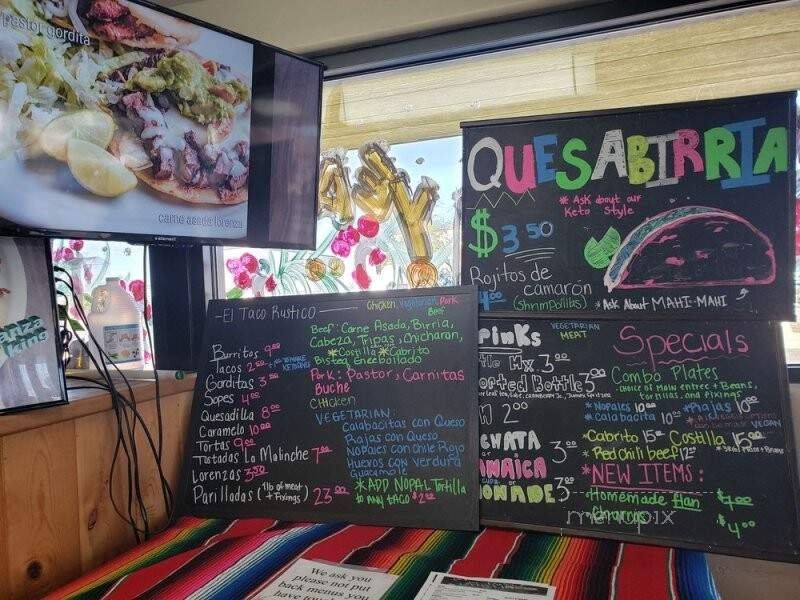 pastor gordita
carne asada lorenza
element
QUESABIRRIA
* Ask about our
Keto style
$3.50
Rojitos de
camarón
4.00
(Shrimpolillas)
* Ask About MAHI-MAHI
-El Taco Rustico
Chicken, Vegetarian, Pork
Beef
Burritos 9.00
Tacos 2.00
Gorditas 3.50
Sopes 4.00
Quesadilla 8.00
Caramelo 10.00
Tortas 9.00
Tostadas La Malinche 7.00
Lorenzas 3.50
Parilladas (1lb of meat + Fixings) 23.00
Beef: Carne Asada, Birria,
Cabeza, Tripas, Chicharan,
*Costilla *Cabrito
Bistec Enchilado
Pork: Pastor, Carnitas
Buche
Chicken
VEGETARIAN:
Calabacitas con Queso
Rajas con Queso
Nopales con Chile Rojo
Huevos con Verdura
Guacamole
*ADD NOPAL Tortilla
to ANY TACO $2.00
VEGETARIAN
MEAT
Mx 3.00
Bottle 3.00
2.00
3.00
3.00
3.00
Specials
Combo Plates
choice of main entree + Beans,
tortillas, and Fixings
*Nopales 10.00 *Rajas 10.00
*Calabacita 10.00
VEGAN
*Cabrito 15.00 Costilla 15.00
*Red Chili beef 12.00
*NEW ITEMS:
Homemade flan $4.00
Churros $4.00
menupix
We ask you
please not put
back menus you
have